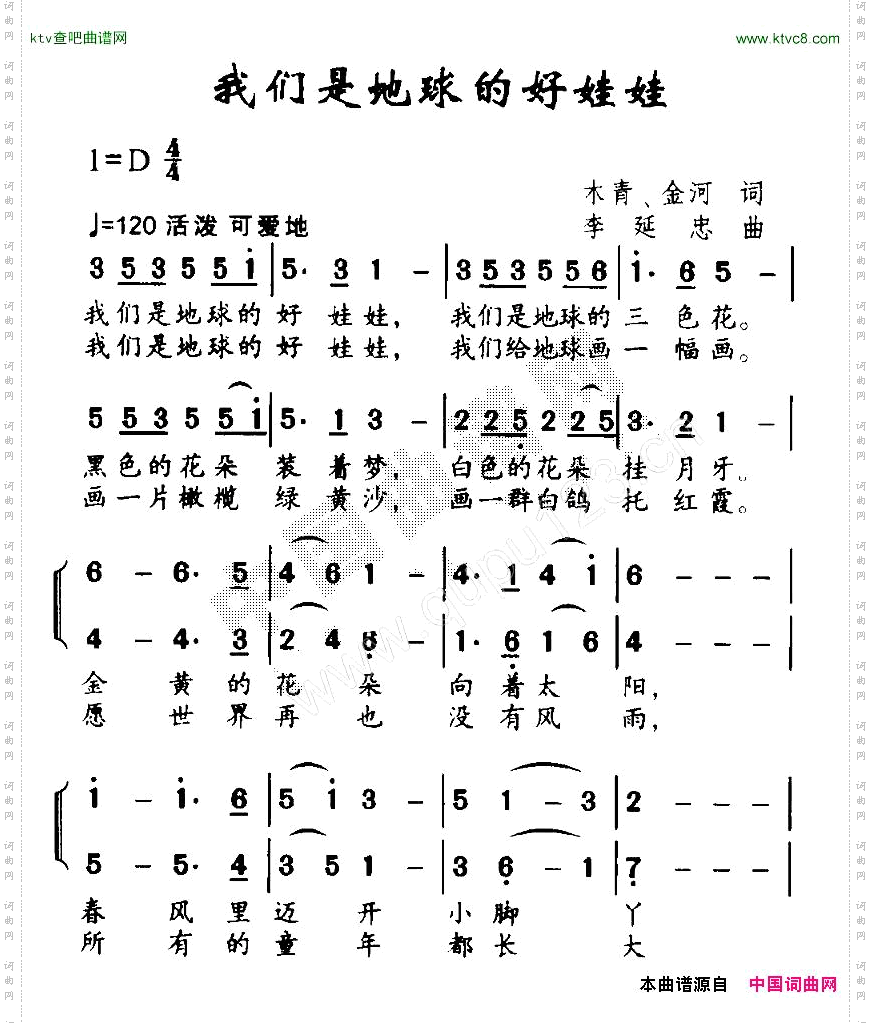 ktv查吧曲谱网 www.ktvc8.com
我们是地球的好娃娃
1=D 4/4
木青、金河 词
♩=120 活泼 可爱地
李延忠 曲
3 5 3 5 5 i | 5· 3 1 – | 3 5 3 5 5 6 | i· 6 5 – |
我们是地球的好 娃娃, 我们是地球的三 色花。
我们是地球的好 娃娃, 我们给地球画一 幅画。
5 5 3 5 5 i | 5· 1 3 – | 2 2 5 2 2 5 | 3· 2 1 – |
黑色的花朵 装 着梦, 白色的花朵 挂 月牙。
画一片橄榄 绿 黄沙, 画一群白鸽 托 红霞。
6 – 6· 5 | 4 6 1 – | 4· 1 4 i | 6 – – – |
4 – 4· 3 | 2 4 6 – | 1· 6 1 6 | 4 – – – |
金 黄的花 朵 向着太 阳,
愿 世界再 也 没有风 雨,
i – i· 6 | 5 i 3 – | 5 1 – 3 | 2 – – – |
5 – 5· 4 | 3 5 1 – | 3 6 – 1 | 7 – – – |
春 风里迈 开 小脚 丫
所 有的童 年 都长 大
本曲谱源自 中国词曲网